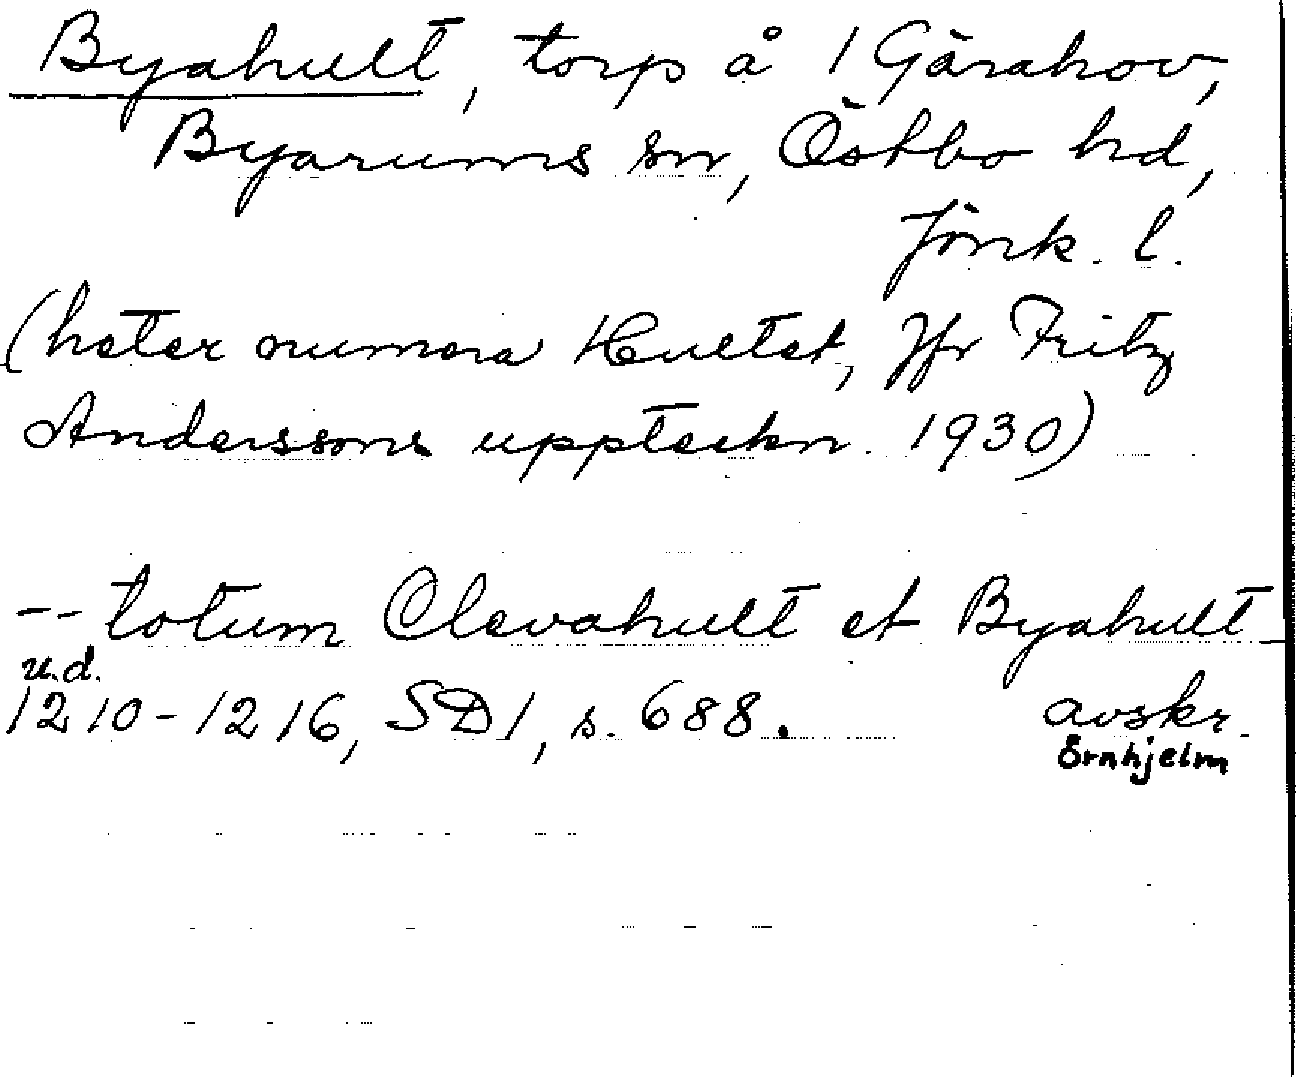 Byahult, torp å 1 Gärahov,
Byarums sn, Östbo hd,
Jönk. l.
(heter numera Hultet, Jfr Fritz
Anderssons uppteckn. 1930)
-- totum Clevahult et Byahult
u.d.
1210-1216, SD1, s. 688. avskr.
Örnhjelm